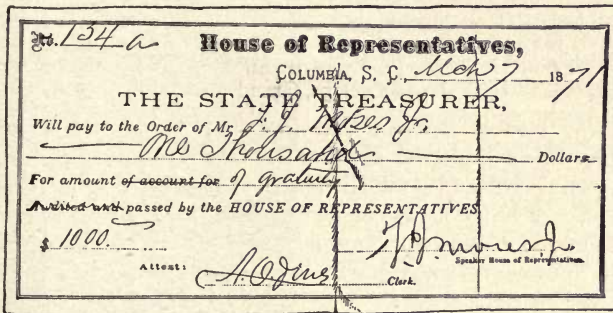 No. 134 a House of Representatives,
COLUMBIA, S. C. Mch 7 1871
THE STATE TREASURER,
Will pay to the Order of Mr. F. J. Moses Jr.
One Thousand Dollars
For amount of account for of gratuity
Audited and passed by the HOUSE OF REPRESENTATIVES.
$ 1000.
F. J. Moses Jr.
Speaker House of Representatives.
Attest: A. O. Jones Clerk.